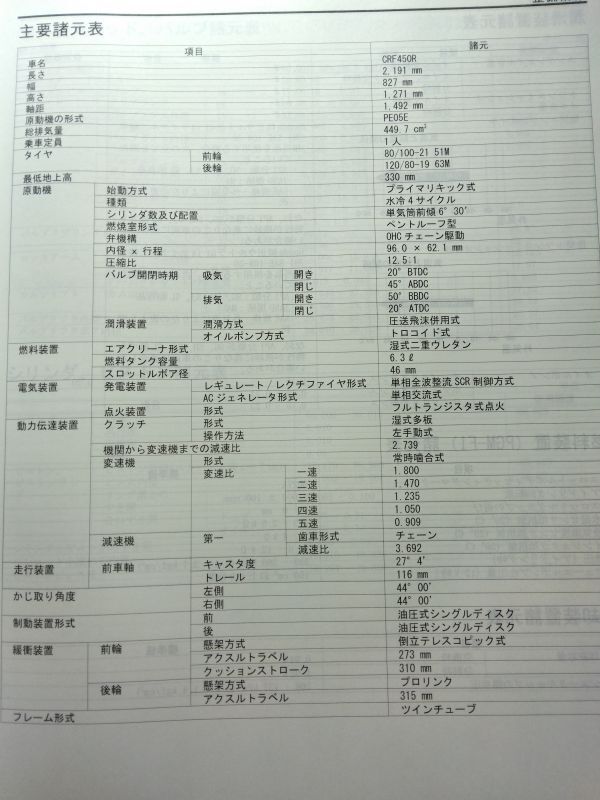 主要諸元表
項目 諸元
車名 CRF450R
長さ 2,191 mm
幅 827 mm
高さ 1,271 mm
軸距 1,492 mm
原動機の形式 PE05E
総排気量 449.7 cm³
乗車定員 1人
タイヤ 前輪 80/100-21 51M
後輪 120/80-19 63M
最低地上高 330 mm
原動機 始動方式 プライマリキック式
種類 水冷4サイクル
シリンダ数及び配置 単気筒前傾6°30'
燃焼室形式 ペントルーフ型
弁機構 OHCチェーン駆動
内径 x 行程 96.0 × 62.1 mm
圧縮比 12.5:1
バルブ開閉時期 吸気 開き 20° BTDC
閉じ 45° ABDC
排気 開き 50° BBDC
閉じ 20° ATDC
潤滑装置 潤滑方式 圧送飛沫併用式
オイルポンプ方式 トロコイド式
燃料装置 エアクリーナ形式 湿式二重ウレタン
燃料タンク容量 6.3ℓ
スロットルボア径 46 mm
電気装置 発電装置 レギュレート/レクチファイヤ形式 単相全波整流SCR制御方式
ACジェネレータ形式 単相交流式
点火装置 形式 フルトランジスタ式点火
動力伝達装置 クラッチ 形式 湿式多板
操作方法 左手動式
機関から変速機までの減速比 2.739
変速機 形式 常時噛合式
変速比 一速 1.800
二速 1.470
三速 1.235
四速 1.050
五速 0.909
減速機 第一 歯車形式 チェーン
減速比 3.692
走行装置 前車軸 キャスタ度 27° 4'
トレール 116 mm
かじ取り角度 左側 44° 00'
右側 44° 00'
制動装置形式 前 油圧式シングルディスク
後 油圧式シングルディスク
緩衝装置 前輪 懸架方式 倒立テレスコピック式
アクスルトラベル 273 mm
クッションストローク 310 mm
後輪 懸架方式 プロリンク
アクスルトラベル 315 mm
フレーム形式 ツインチューブ